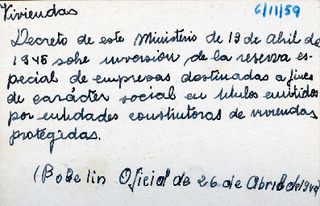 Viviendas 6/11/59
Decreto de este Ministerio de 13 de Abril de
1948 sobre inversion de la reserva es-
pecial de empresas destinadas a fines
de carácter social en titulos emitidos
por entidades constructoras de viviendas
protegidas.
(Boletin Oficial de 26 de Abril de